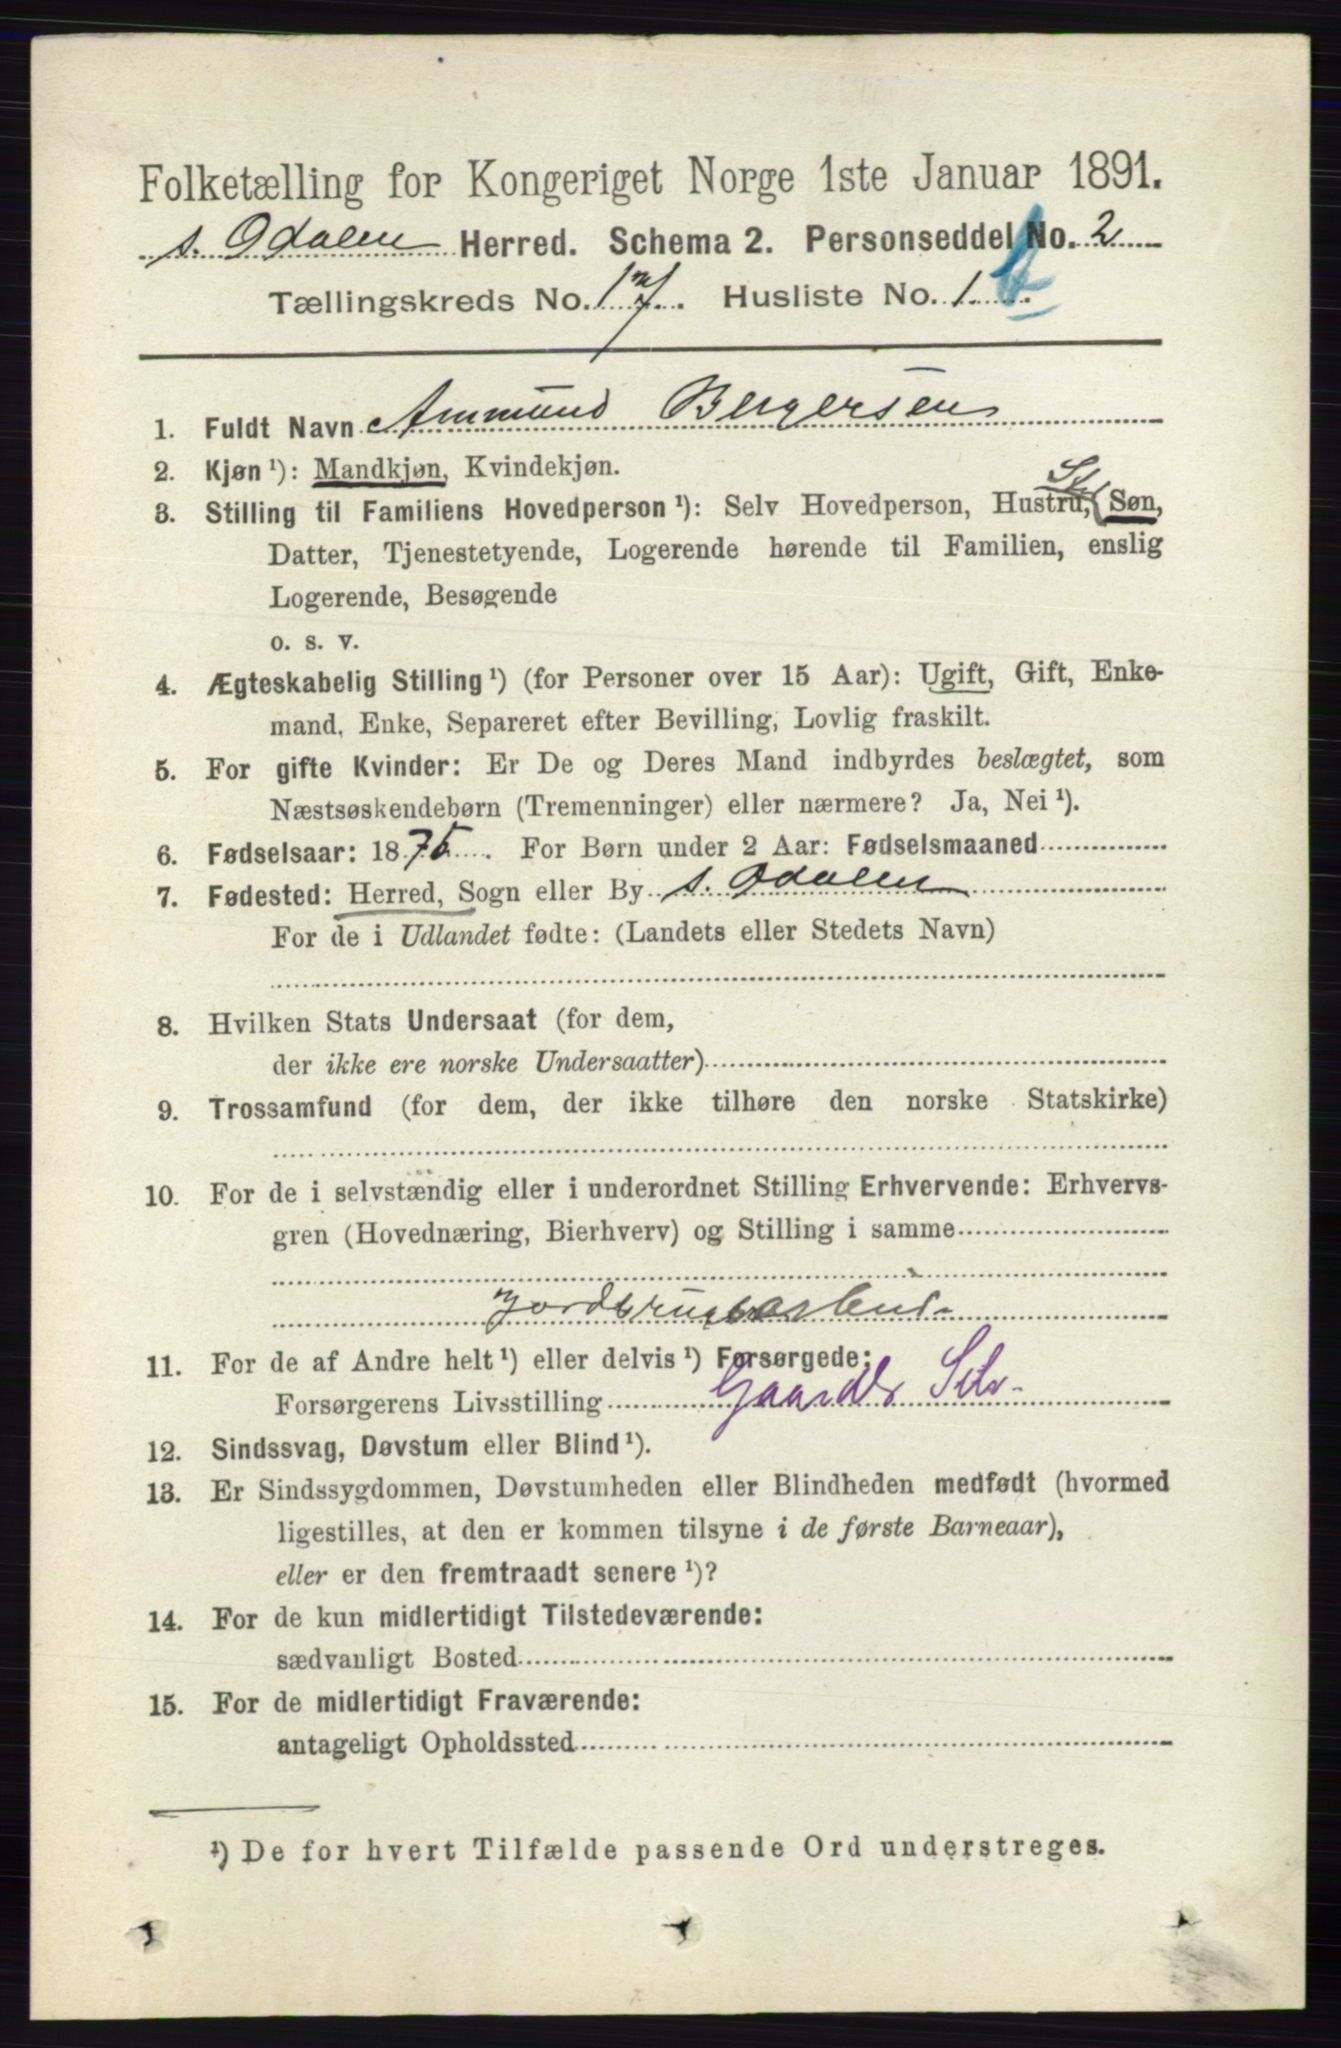 Folketælling for Kongeriget Norge 1ste Januar 1891.
s. Odalen Herred. Schema 2. Personseddel No. 2
Tællingskreds No. 17. Husliste No. 1
1. Fuldt Navn Ammund Bergersen
2. Kjøn ¹): Mandkjøn, Kvindekjøn.
St.
3. Stilling til Familiens Hovedperson ¹): Selv Hovedperson, Hustru, (Søn,
Datter, Tjenestetyende, Logerende hørende til Familien, enslig
Logerende, Besøgende
o. s. v.
4. Ægteskabelig Stilling ¹) (for Personer over 15 Aar): Ugift, Gift, Enke-
mand, Enke, Separeret efter Bevilling, Lovlig fraskilt.
5. For gifte Kvinder: Er De og Deres Mand indbyrdes beslægtet, som
Næstsøskendebørn (Tremenninger) eller nærmere? Ja, Nei ¹).
6. Fødselsaar: 1875. For Børn under 2 Aar: Fødselsmaaned
7. Fødested: Herred, Sogn eller By s. Odalen
For de i Udlandet fødte: (Landets eller Stedets Navn)
8. Hvilken Stats Undersaat (for dem,
der ikke ere norske Undersaatter)
9. Trossamfund (for dem, der ikke tilhøre den norske Statskirke)
10. For de i selvstændig eller i underordnet Stilling Erhvervende: Erhvervs-
gren (Hovednæring, Bierhverv) og Stilling i samme
Jordbrugsarbeid.
11. For de af Andre helt ¹) eller delvis ¹) Forsørgede:
Forsørgerens Livsstilling Gaardbr Selv.
12. Sindssvag, Døvstum eller Blind ¹).
13. Er Sindssygdommen, Døvstumheden eller Blindheden medfødt (hvormed
ligestilles, at den er kommen tilsyne i de første Barneaar),
eller er den fremtraadt senere ¹)?
14. For de kun midlertidigt Tilstedeværende:
sædvanligt Bosted
15. For de midlertidigt Fraværende:
antageligt Opholdssted
¹) De for hvert Tilfælde passende Ord understreges.